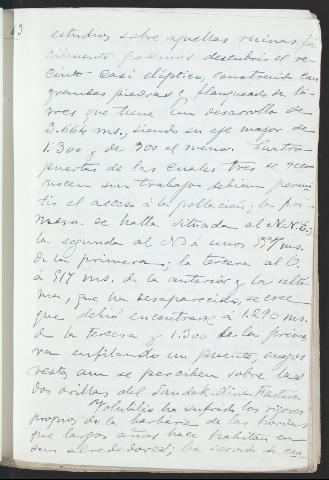 63
estudios sobre aquellas ruinas fa
cilmente podemos descubrir el re-
cinto casi elíptico, construido con
grandes piedras y flanqueado de to-
rres que tiene un desarrollo de
3.664 ms., siendo su eje mayor de
1.300 y de 900 el menor. Cuatro
puertas de las cuales tres se reco
nocen sin trabajo debian permi
tir el acceso á la población; la pri-
mera se halla situada al N.N.E.;
la segunda al N.O á unos ms.
de la primera; la tercera al O.
á 917 ms. de la anterior y la ulti
ma, que ha desaparecido, se cree
que debió encontrarse á 1.290 ms.
de la tercera y 1.300 de la prime
ra enfilando un puente, cuyos
restos aun se perciben sobre las
dos orillas del
Volubilis ha sufrido los rigores
propios de la barbarie de las hordas
que largos años hace habitan en
sus alrededores; ha servido de can